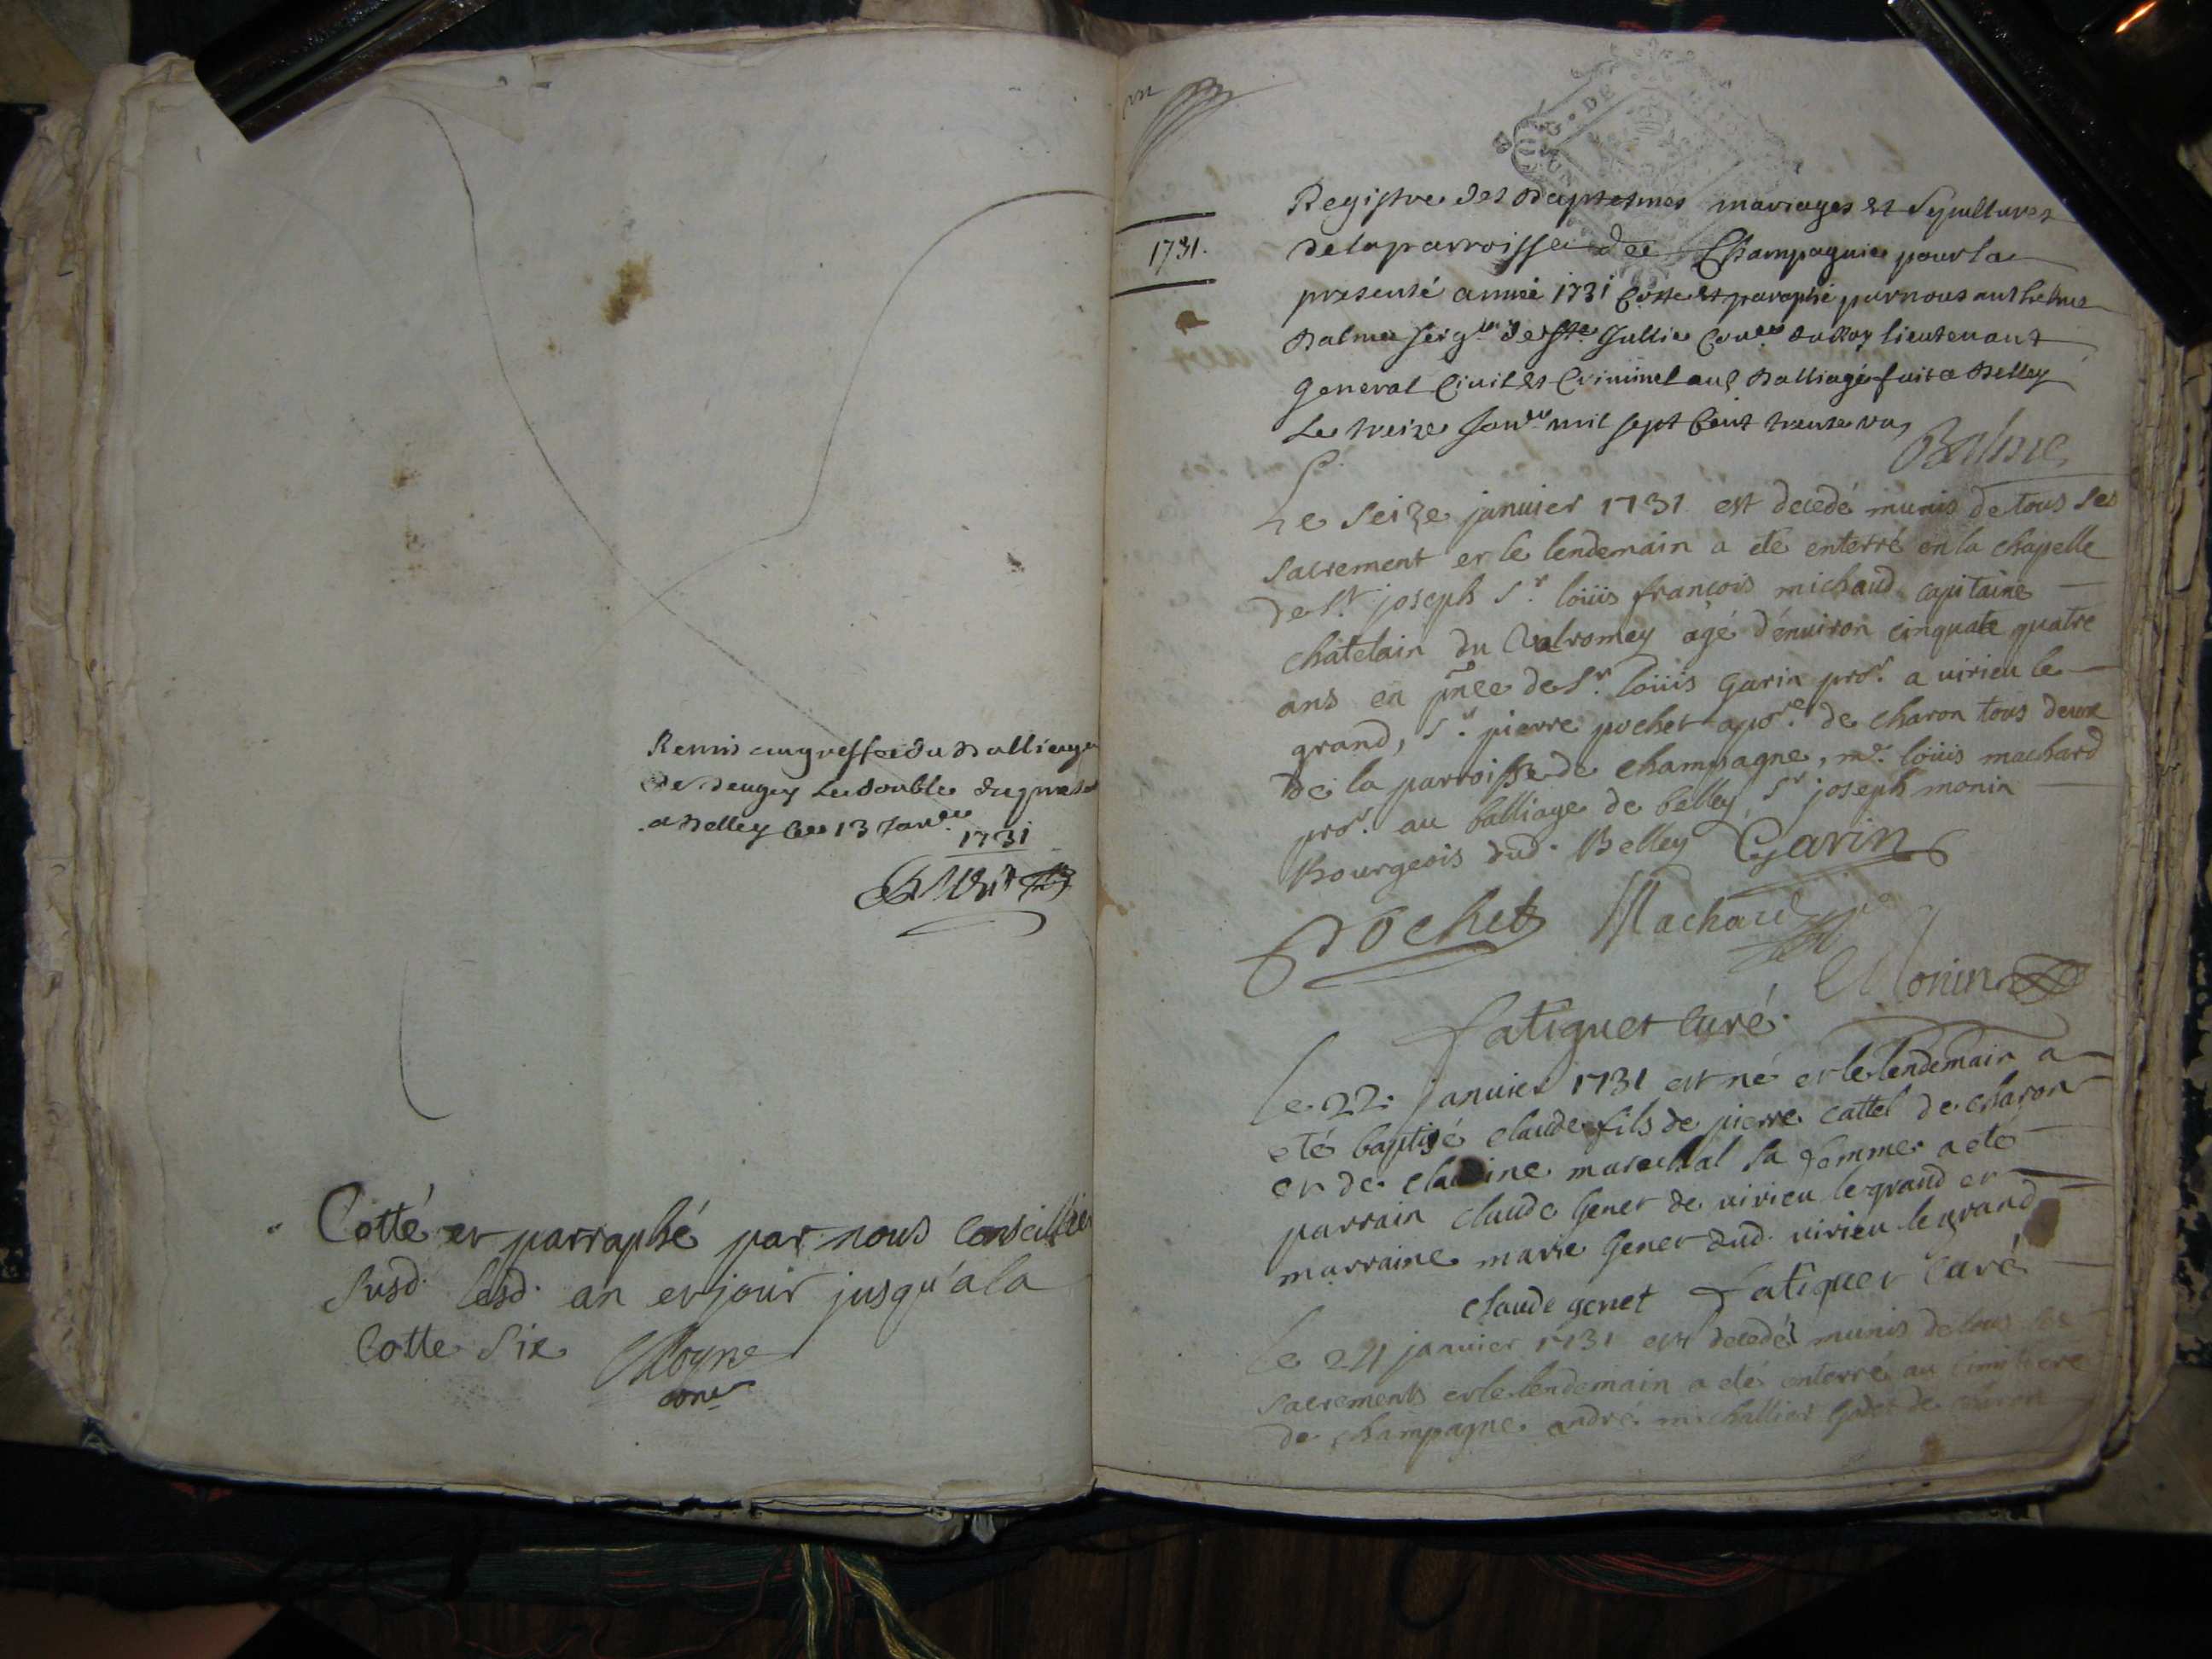 Remis au greffe du Balliage
de Beugey Le double du present
a Belley ce 13 Janver
1731
Cotté et parraphé par nous conseillier
susd. lesd. an et jour jusqu'a la
cotte six
1731.
Registre des Baptesmes mariages et Sepultures
de la parroisse de Champagnie pour la
presente année 1731 Cotte et paraphé par nous anthelme
Balme seigr de Ste Jullie Coner du Roy lieutenant
General Civil et Criminel au Balliage fait a Belley
Le treize Janver mil sept Cent trente un
Balme
Le seize januier 1731 est decedé munis de tous ses
sacrement et le lendemain a eté enterré en la chapelle
de St joseph Sr. loüis françois michaud capitaine
chatelain du Valromey agé d'enuiron cinquate quatre
ans en pnce de Sr. loüis Garin pror. a uirieu le
grand, Sr. pierre pochet de charon tous deux
de la parroisse de champagne, me. loüis machard
pror. au balliage de belley Sr joseph monin
Bourgeois dud. Belley Garin
Pochet Machard
Monin
fatiguet curé.
Le 22. januier 1731 est né et le lendemain a
eté baptisé claude fils de pierre cattel de charon
et de claudine marechal sa femme a eté
parrain claude Genet de uirieu le grand et
marraine marie Genet dud. uirieu le grand
claude genet fatiguet curé
Le 24 januier 1731 est decedé munis de tous ses
sacrements et le lendemain a eté enterré au cimitiere
de champagne andré michallier de charon